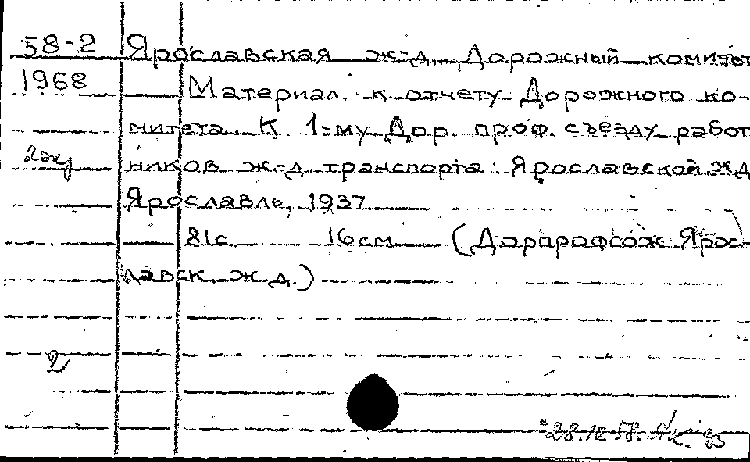 58-2 Ярославская ж-д. Дорожный комитет
1968 Материал. к отчету Дорожного ко-
митета К 1-му Дор. проф. съезду работ
2 экз ников ж-д транспорта: Ярославской ж.д
Ярославль, 1937
81с 16см (Дорпрофсож Ярос-
лавск. ж.д.)
2
28.12.58.